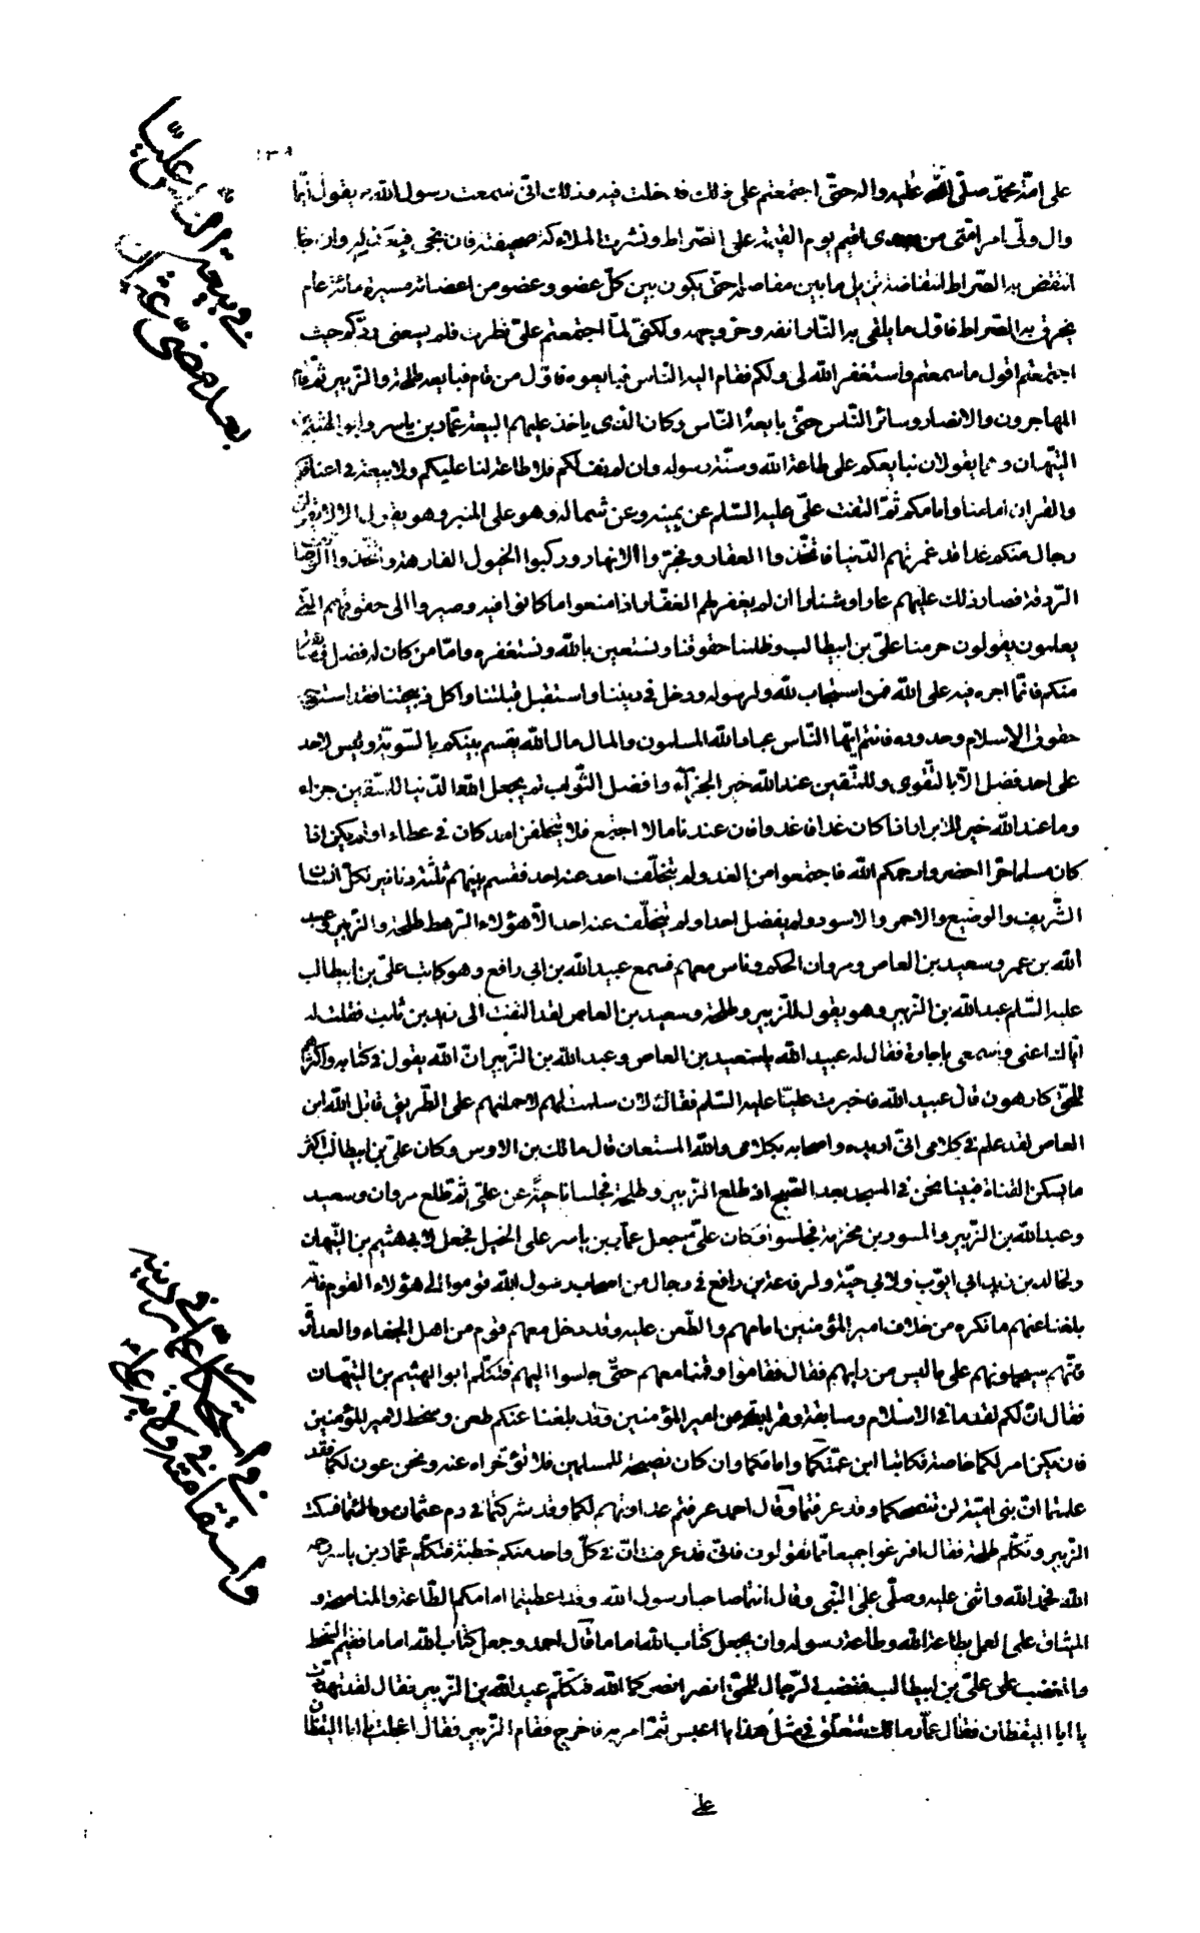 في بيعة الناس عليّا
بعد مضيّ عثمان
١٣٨
على امّة محمّد صلّى الله عليه واله حتّى اجتمعتم على ذلك فدخلت فيه وذلك انّى سمعت رسول الله ص يقول ايّما
وال ولّى امر امّتى من بعدى اقيم يوم القيمة على الصّراط ونشرت الملائكة صحيفته فان نجى فبعدله وان جا
انتقض به الصّراط انتقاضة تزيل ما بين مفاصله حتّى يكون بين كلّ عضو وعضو من اعضائه مسيرة مائة عام
يخرق به الصّراط فاوّل ما يلقى به النّار انفه وحرّ وجهه ولكنّى لمّا اجتمعتم علىّ نظرت فلم يسعنى ردّكم حيث
اجتمعتم اقول ما سمعتم واستغفر الله لى ولكم فقام اليه النّاس فبايعوه فاوّل من قام فبايعه طلحة والزّبير ثمّ قام
المهاجرون والانصار وسائر النّاس حتّى بايعه النّاس وكان الّذى ياخذ عليهم البيعة عمّار بن ياسر وابو الهيثم بن
التيّهان وهما يقولان نبايعكم على طاعة الله وسنّة رسوله وان لم نف لكم فلا طاعة لنا عليكم ولا بيعة فى اعناقكم
والقران امامنا وامامكم ثمّ التفت علىّ عليه السّلم عن يمينه وعن شماله وهو على المنبر وهو يقول الا لا يقولنّ
رجال منكم غدا قد غمرتهم الدّنيا فاتّخذوا العقار وفجّروا الانهار وركبوا الخيول الفارهة واتّخذوا الوصا
الرّوقة فصار ذلك عليهم عارا وشنارا ان لم يغفر لهم الغفّار اذا منعوا ما كانوا فيه وصيروا الى حقوقهم الّتى
يعلمون يقولون حرمنا علىّ بن ابيطالب وظلمنا حقوقنا ونستعين بالله ونستغفره وامّا من كان له فضل
منكم فانّما اجره فيه على الله فمن استجاب لله ولرسوله ودخل فى ديننا واستقبل قبلتنا واكل ذبيحتنا فقد استوجب
حقوق الاسلام وحدوده فانتم ايّها النّاس عباد الله المسلمون والمال مال الله يقسم بينكم بالسّويّة وليس لاحد
على احد فضل الّا بالتّقوى وللمتّقين عند الله خير الجزاء وافضل الثّواب لم يجعل الله الدّنيا للمتّقين جزاء
وما عند الله خير للابرار اذا كان غدا فاغدوا فان عندنا مالا اجتمع فلا يتخلّفن احد كان فى عطاء او لم يكن اذا
كان مسلما حرّا احضروا رحمكم الله فاجتمعوا من الغد ولم يتخلّف احد عنه احد فقسم بينهم ثلثة دنانير لكلّ انسان
الشّريف والوضيع والاحمر والاسود ولم يفضل احدا ولم يتخلّف عنه احد الّا هؤلاء الرّهط طلحة والزّبير وعبد
الله بن عمر وسعيد بن العاص ومروان الحكم وناس معهم فسمع عبيد الله بن ابى رافع وهو كاتب علىّ بن ابيطالب
عليه السّلم عبد الله بن الزّبير وهو يقول للزّبير وطلحة وسعيد بن العاص لقد التفت الى زيد بن ثابت فقلت له
ايّاك اعنى واسمعى ياجارة فقال له عبيد الله ياسعيد بن العاص وعبد الله بن الزّبير انّ الله يقول فى كتابه واكثرهم
للحقّ كارهون قال عبيد الله فاخبرت عليّا عليه السّلم فقال لان سلمت لهم لاحملنهم على الطّريق قاتل الله ابن
العاص لقد علم فى كلامى انّى اريده واصحابه بكلامى والله المستعان قال مالك بن الاوس وكان علىّ بن ابيطالب اكثر
ما يسكن القناة فبينا نحن فى المسجد بعد الصّبح اذ طلع الزّبير وطلحة فجلسا ناحية عن علىّ ثمّ طلع مروان وسعيد
وعبد الله بن الزّبير والمسور بن مخرمة فجلسوا وكان علىّ ع جعل عمّار بن ياسر على الخيل فجعل لابى هيثم بن التّيهان
ولخالد بن زيد ابى ايّوب ولابى حيّة ولرفاعة بن رافع فى رجال من اصحاب رسول الله قوموا الى هؤلاء القوم فانّه
بلغنا عنهم ما نكره من خلاف امير المؤمنين امامهم والطّعن عليه وقد دخل معهم قوم من اهل الجفاء والعداوة
فانّهم سيحملونهم على ما ليس من رايهم فقال فقاموا وقمنا معهم حتّى جلسوا اليهم فتكلّم ابو الهيثم بن التيّهان
فقال انّ لكم لقدما فى الاسلام ومسابقة وقرابة من امير المؤمنين وقد بلغنا عنكم طعن وسخط لامير المؤمنين
فان يكن امر لكما خاصة فعاتبا ابن عمّتكما وامامكما وان كان نصيحة للمسلمين فلا تؤخّراه عنه ونحن عون لكما فقد
علمتما انّ بنى اميّة لن تنصحكما وقد عرفتما وقال احمد عرفتم عداوتهم لكما وقد شركتما فى دم عثمان ومالئتما فسكت
الزّبير وتكلّم طلحة فقال افرغوا جميعا ممّا تقولون فانّى قد عرفت انّ فى كلّ واحد منكم خطبة فتكلّم عمّار بن ياسر رحمه
الله فحمد الله واثنى عليه وصلّى على النّبى وقال انتما صاحبا رسول الله وقد اعطيتما امامكم الطّاعة والمناصحة و
الميثاق على العمل بطاعة الله وطاعة رسوله وان يجعل كتاب الله اماما قال احمد وجعل كتاب الله اماما ففيم السّخط
والغضب على علىّ بن ابيطالب فغضب الرّجال للحقّ انصرا نصركما الله فتكلّم عبد الله بن الزّبير فقال لقد تهدّدت
يا ابا اليقظان فقال عمّار مالك تتعلّق فى مثل هذا يا اعبس ثمّ امر به فاخرج فقام الزّبير فقال اعجلت يا ابا اليقظان
واستقامته
على